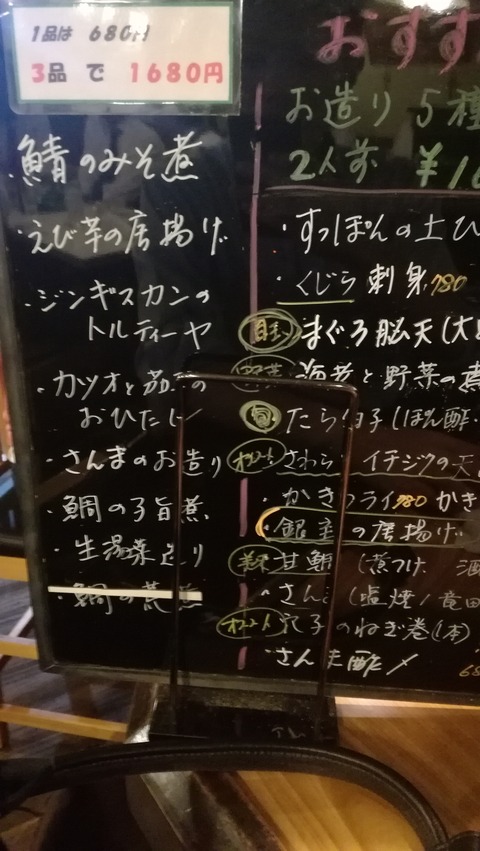 1品は 680円
3品 で 1680円
・鯖のみそ煮
・えび芋の唐揚げ
・ジンギスカンの
トルティーヤ
・カツオと茄子の
おひたし
・さんまのお造り
・鯛の子旨煮
・生湯葉造り
・鯛の荒煮
おすす
お造り 5種
2人前 ¥16
・すっぽんの土ひ
・くじら刺身 780
まぐろ脳天(大
野菜 海老と野菜の煮
旬 たら白子(ぽん酢・
さわら イチジクの天
・かきフライ 980 かき
の唐揚げ
甘鯛 (煮つけ 酒
・さん (塩焼/竜田
穴子のねぎ巻(1本)